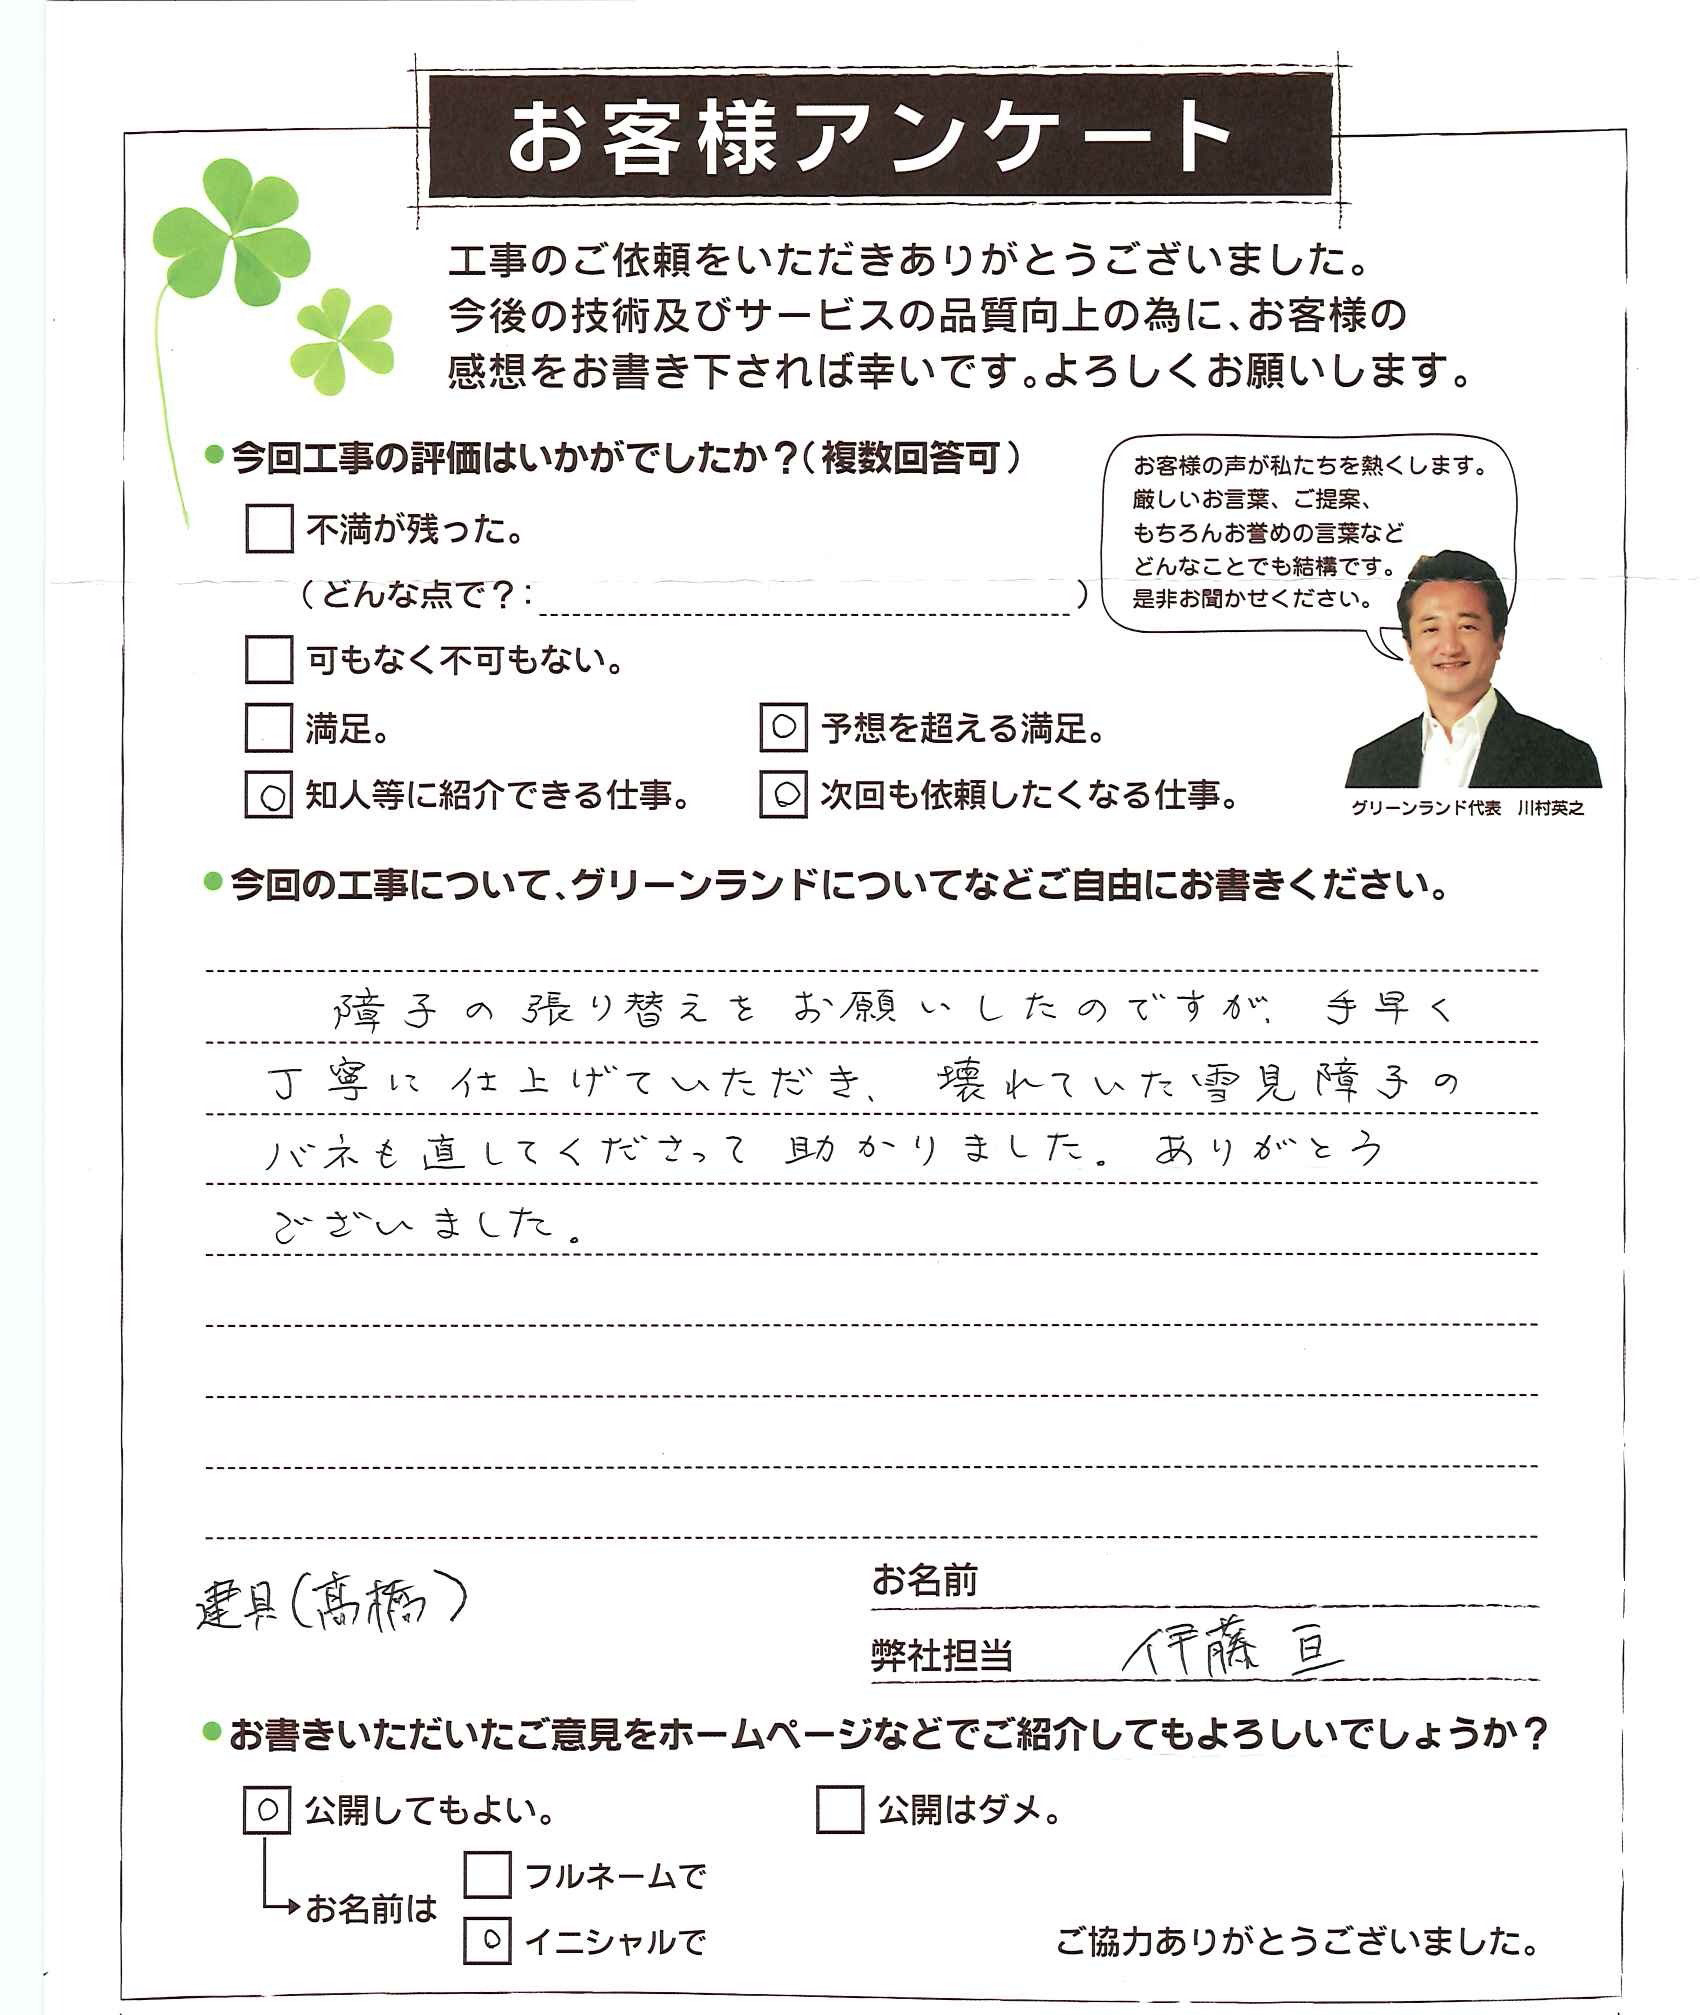 お客様アンケート
工事のご依頼をいただきありがとうございました。
今後の技術及びサービスの品質向上の為に、お客様の
感想をお書き下されば幸いです。よろしくお願いします。
●今回工事の評価はいかがでしたか？（複数回答可）
お客様の声が私たちを熱くします。
厳しいお言葉、ご提案、
もちろんお誉めの言葉など
どんなことでも結構です。
是非お聞かせください。
□ 不満が残った。
（どんな点で？：　）
□ 可もなく不可もない。
□ 満足。
○ 予想を超える満足。
○ 知人等に紹介できる仕事。
○ 次回も依頼したくなる仕事。
グリーンランド代表　川村英之
●今回の工事について、グリーンランドについてなどご自由にお書きください。
障子の張り替えをお願いしたのですが、手早く
丁寧に仕上げていただき、壊れていた雪見障子の
バネも直してくださって助かりました。ありがとう
ございました。
建具（髙橋）
お名前
弊社担当　伊藤 亘
●お書きいただいたご意見をホームページなどでご紹介してもよろしいでしょうか？
○ 公開してもよい。
□ 公開はダメ。
お名前は
□ フルネームで
○ イニシャルで
ご協力ありがとうございました。